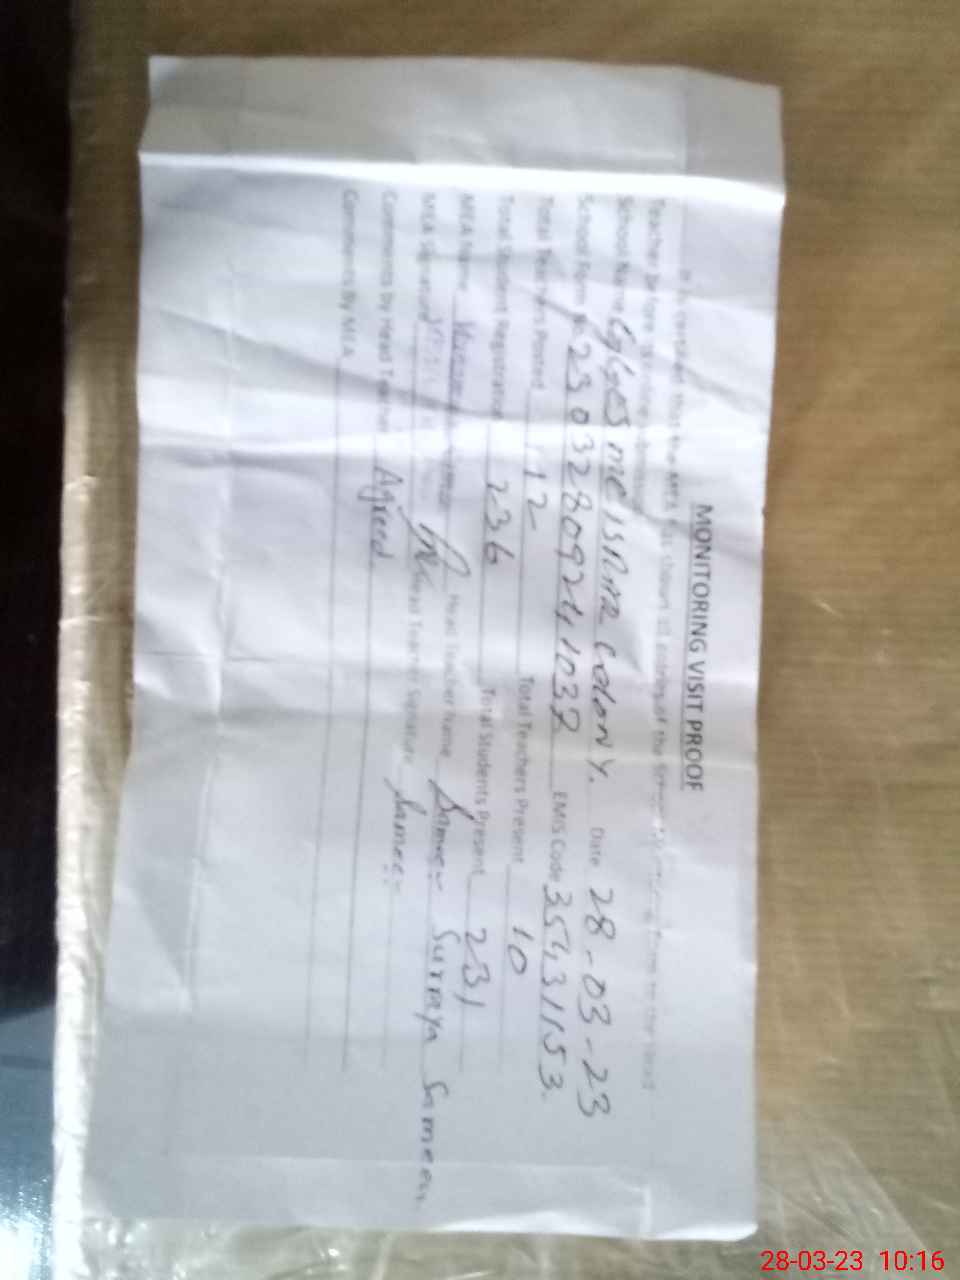 MONITORING VISIT PROOF
It is certified that the MEA has shown all entries of the School Monitoring Form to the Head
Teacher before
School Name GGES MC ISRAR COLONY. Date 28-03-23
School Form No. 23032809241037 EMIS Code 35431153.
Total Teachers Posted 12 Total Teachers Present 10
Total Student Registration 236 Total Students Present 231
MEA Name Head Teacher Name Surraya Sameen
MEA Signature Head Teacher Signature Sameen
Comments by Head Teacher Agreed
Comments By MEA
28-03-23 10:16